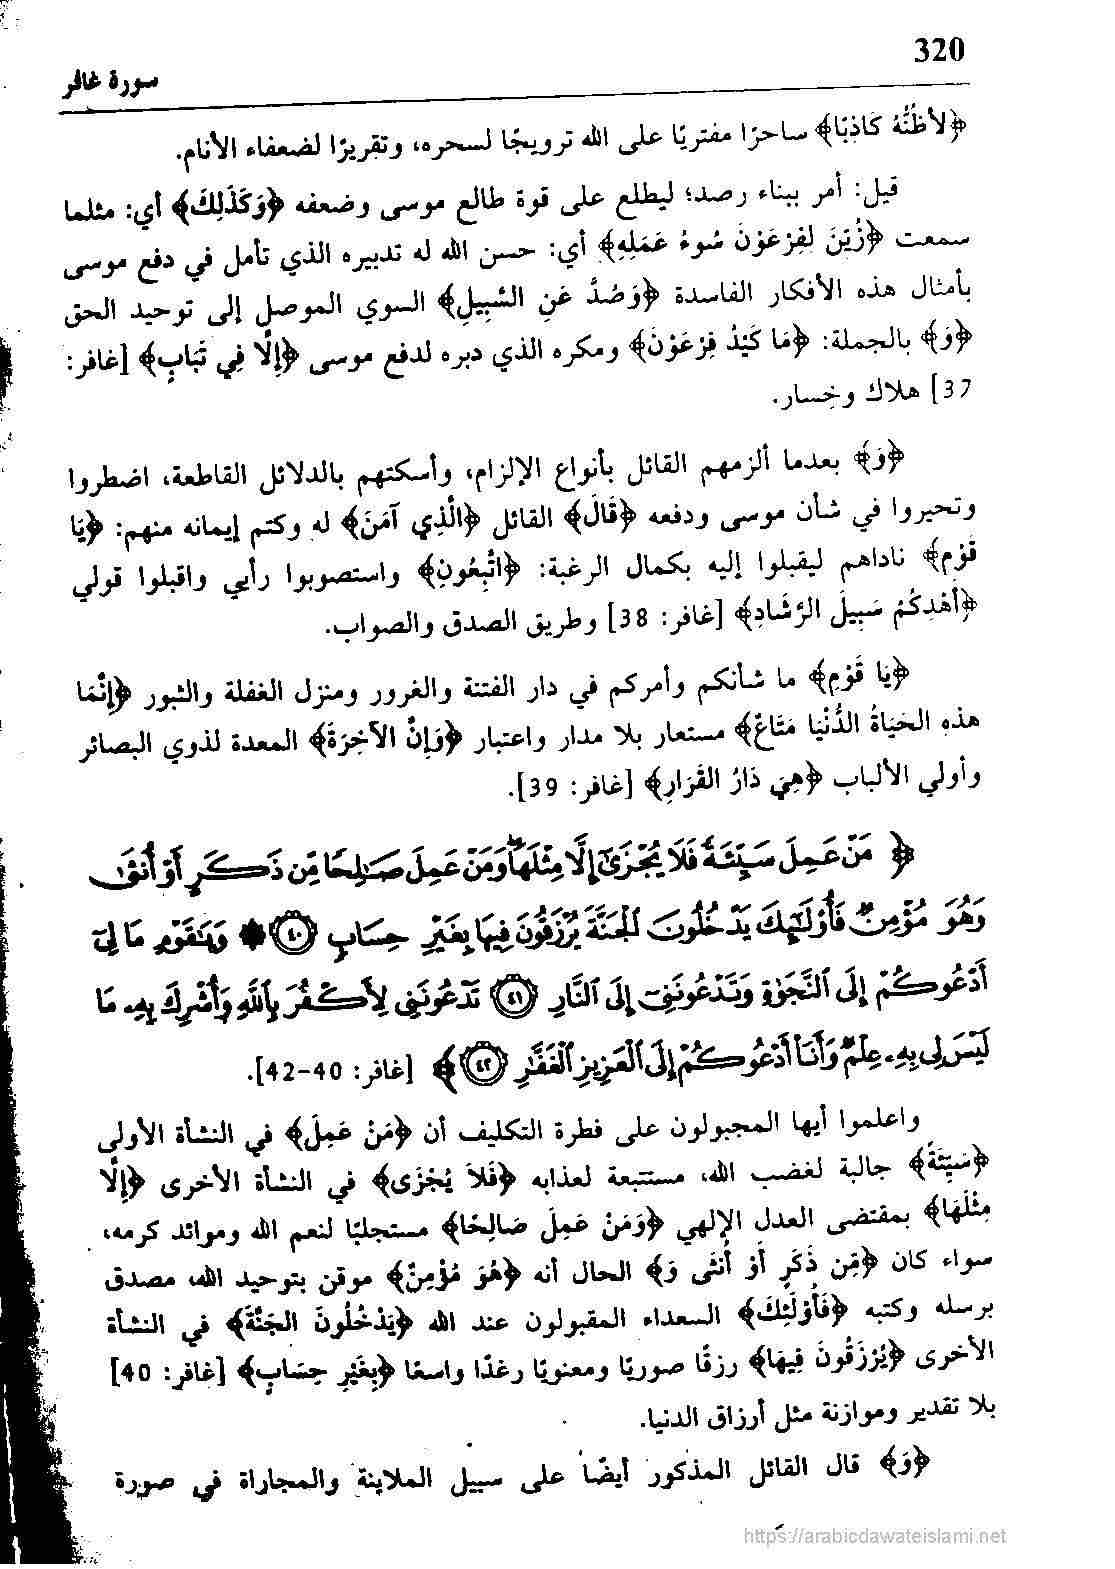 320
سورة غافر
﴿لأَظُنُّهُ كَاذِبًا﴾ ساحرًا مفتريًا على الله ترويجًا لسحره، وتقريرًا لضعفاء الأنام.
قيل: أمر ببناء رصد؛ ليطلع على قوة طالع موسى وضعفه ﴿وَكَذَلِكَ﴾ أي: مثلما
سمعت ﴿زُيِّنَ لِفِرْعَوْنَ سُوءُ عَمَلِهِ﴾ أي: حسن الله له تدبيره الذي تأمل في دفع موسى
بأمثال هذه الأفكار الفاسدة ﴿وَصُدَّ عَنِ السَّبِيلِ﴾ السوي الموصل إلى توحيد الحق
﴿وَ﴾ بالجملة: ﴿مَا كَيْدُ فِرْعَوْنَ﴾ ومكره الذي دبره لدفع موسى ﴿إِلَّا فِي تَبَابٍ﴾ [غافر:
37] هلاك وخسار.
﴿وَ﴾ بعدما ألزمهم القائل بأنواع الإلزام، وأسكتهم بالدلائل القاطعة، اضطروا
وتحيروا في شأن موسى ودفعه ﴿قَالَ﴾ القائل ﴿الَّذِي آمَنَ﴾ له وكتم إيمانه منهم: ﴿يَا
قَوْمِ﴾ ناداهم ليقبلوا إليه بكمال الرغبة: ﴿اتَّبِعُونِ﴾ واستصوبوا رأيي واقبلوا قولي
﴿أَهْدِكُمْ سَبِيلَ الرَّشَادِ﴾ [غافر: 38] وطريق الصدق والصواب.
﴿يَا قَوْمِ﴾ ما شأنكم وأمركم في دار الفتنة والغرور ومنزل الغفلة والثبور ﴿إِنَّمَا
هذه الحَيَاةُ الدُّنْيَا مَتَاعٌ﴾ مستعار بلا مدار واعتبار ﴿وَإِنَّ الآخِرَةَ﴾ المعدة لذوي البصائر
وأولي الألباب ﴿هِيَ دَارُ القَرَارِ﴾ [غافر: 39].
﴿ مَنْ عَمِلَ سَيِّئَةً فَلَا يُجْزَىٰٓ إِلَّا مِثْلَهَا ۖ وَمَنْ عَمِلَ صَـٰلِحًا مِّن ذَكَرٍ أَوْ أُنثَىٰ
وَهُوَ مُؤْمِنٌ فَأُو۟لَـٰٓئِكَ يَدْخُلُونَ ٱلْجَنَّةَ يُرْزَقُونَ فِيهَا بِغَيْرِ حِسَابٍ ٤٠ ۞ وَيَـٰقَوْمِ مَا لِىٓ
أَدْعُوكُمْ إِلَى ٱلنَّجَوٰةِ وَتَدْعُونَنِىٓ إِلَى ٱلنَّارِ ٤١ تَدْعُونَنِى لِأَكْفُرَ بِٱللَّهِ وَأُشْرِكَ بِهِۦ مَا
لَيْسَ لِى بِهِۦ عِلْمٌ وَأَنَا۠ أَدْعُوكُمْ إِلَى ٱلْعَزِيزِ ٱلْغَفَّـٰرِ ٤٢ ﴾ [غافر: 40-42].
واعلموا أيها المجبولون على فطرة التكليف أن ﴿مَنْ عَمِلَ﴾ في النشأة الأولى
﴿سَيِّئَةً﴾ جالبة لغضب الله، مستتبعة لعذابه ﴿فَلاَ يُجْزَى﴾ في النشأة الأخرى ﴿إِلَّا
مِثْلَهَا﴾ بمقتضى العدل الإلهي ﴿وَمَنْ عَمِلَ صَالِحًا﴾ مستجلبًا لنعم الله وموائد كرمه،
سواء كان ﴿مِّن ذَكَرٍ أَوْ أُنثَى وَ﴾ الحال أنه ﴿هُوَ مُؤْمِنٌ﴾ موقن بتوحيد الله، مصدق
برسله وكتبه ﴿فَأُوْلَئِكَ﴾ السعداء المقبولون عند الله ﴿يَدْخُلُونَ الجَنَّةَ﴾ في النشأة
الأخرى ﴿يُرْزَقُونَ فِيهَا﴾ رزقًا صوريًا ومعنويًا رغدًا واسعًا ﴿بِغَيْرِ حِسَابٍ﴾ [غافر: 40]
بلا تقدير وموازنة مثل أرزاق الدنيا.
﴿وَ﴾ قال القائل المذكور أيضًا على سبيل الملاينة والمجاراة في صورة
https://arabicdawateislami.net